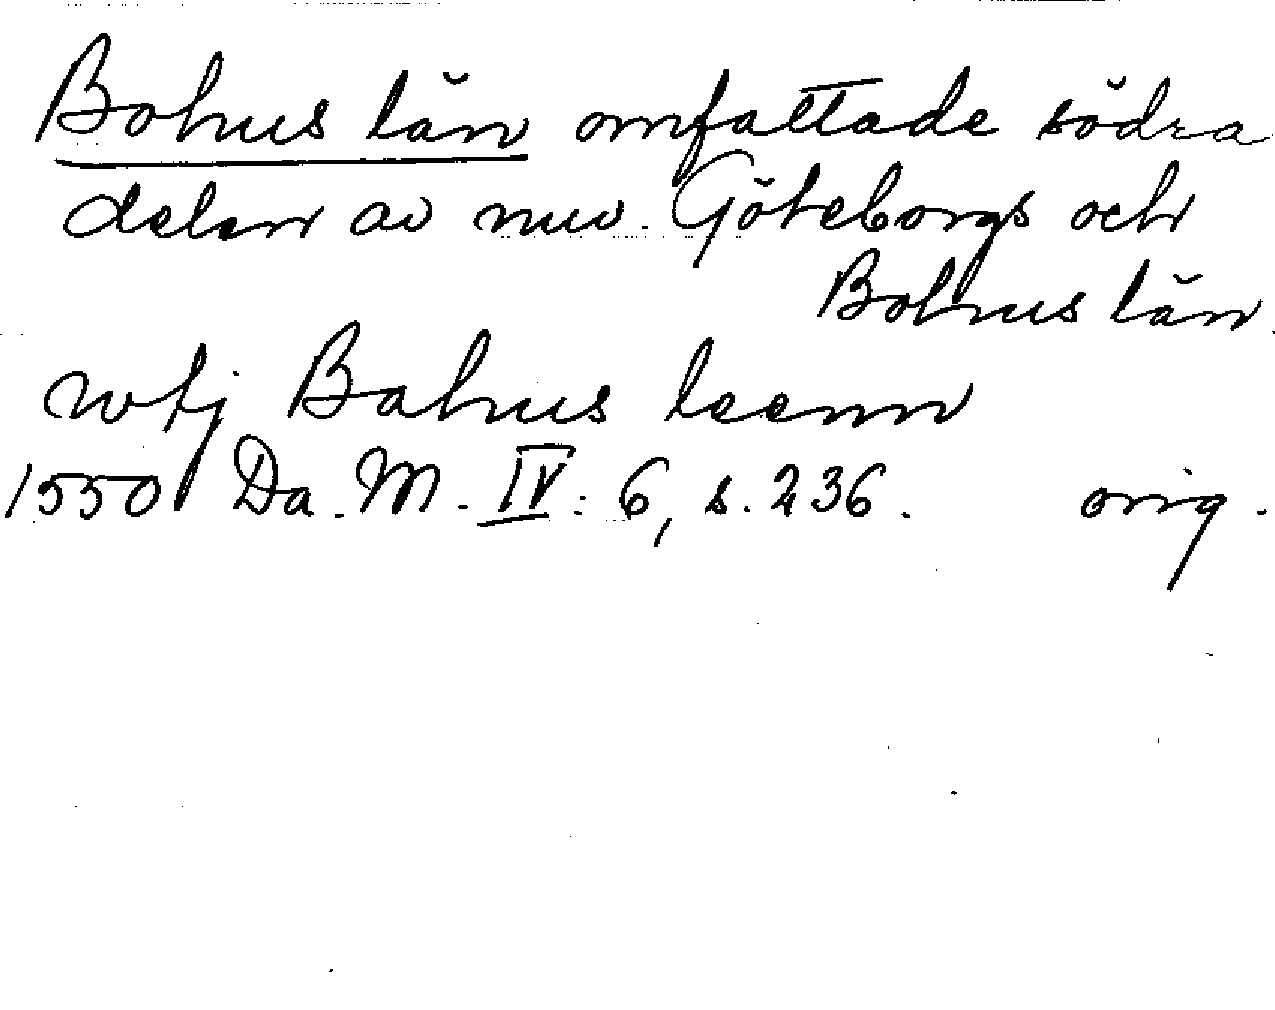 Bohus län omfattade södra
delen av nuv. Göteborgs och
Bohus län.
wtj Bahus leenn
1550 Da. M. IV: 6, s. 236. orig.